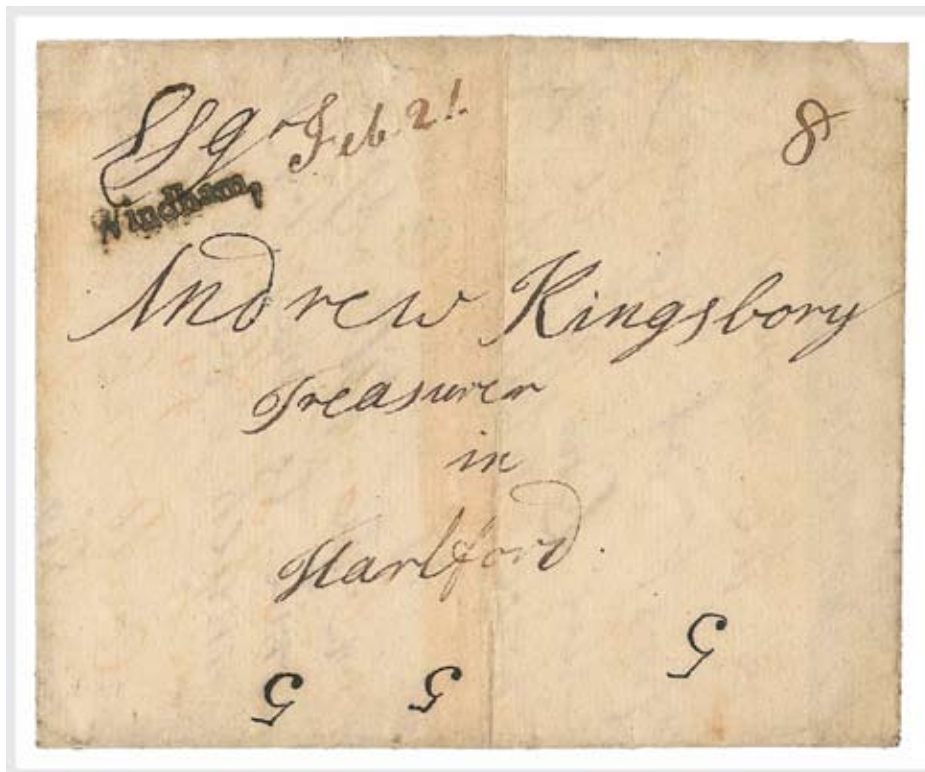 Esqr Feb 21.
8
Windham,
Andrew Kingsbory
Treasurer
in
Hartford.
5
5 5